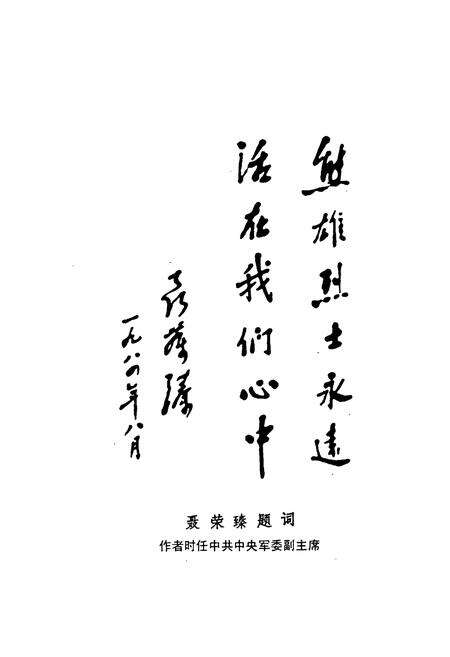 熊雄烈士永远
活在我们心中
聂荣臻
一九八四年八月
聂荣臻题词
作者时任中共中央军委副主席